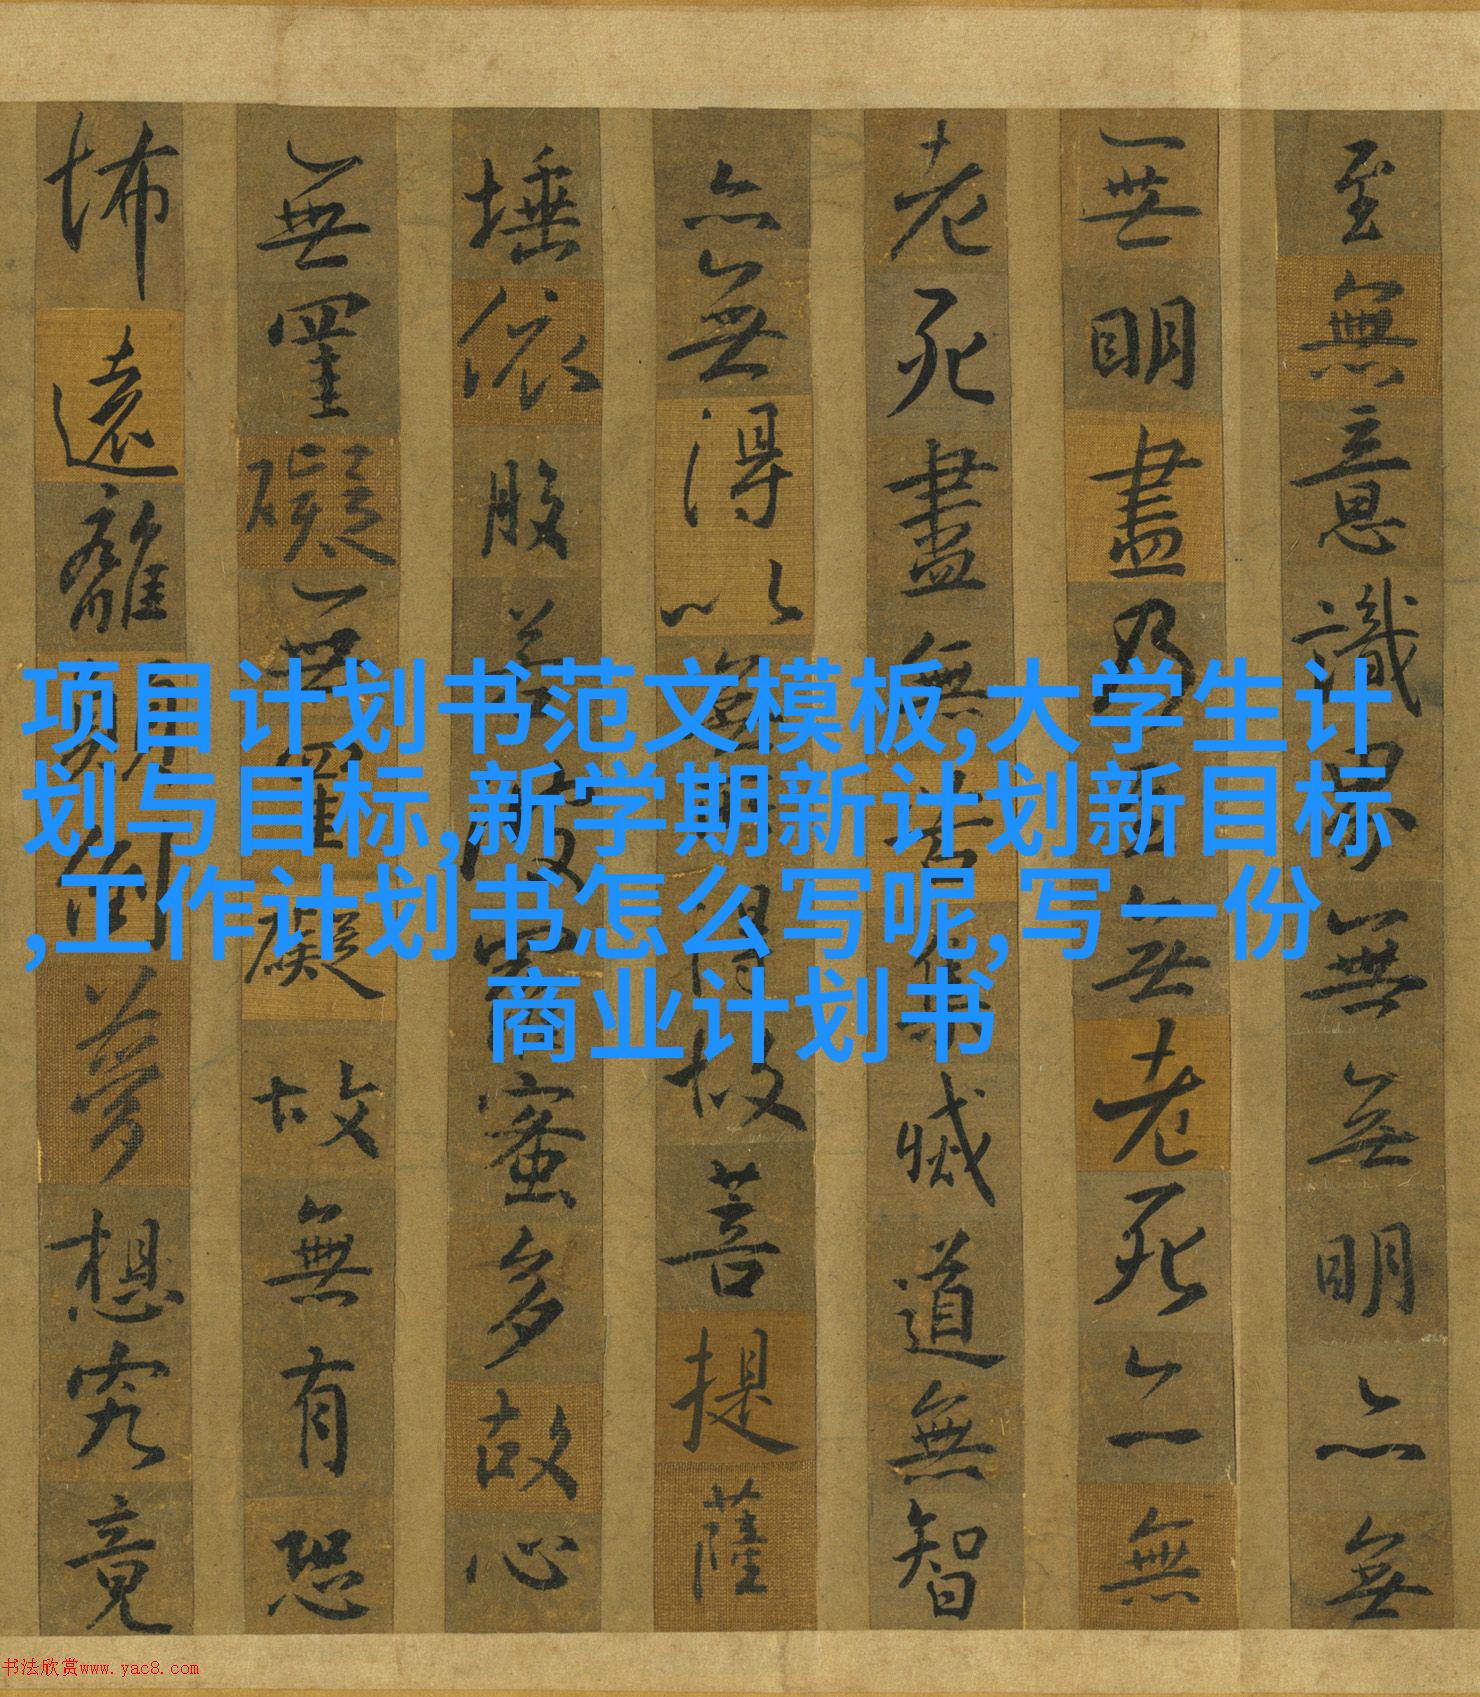 至無意識界無無明亦無
無明盡乃至無老死亦無
老死盡無苦集滅道無智
亦無得以無所得故菩提薩
埵依般若波羅蜜多故心
無罣礙無罣礙故無有恐
怖遠離顛倒夢想究竟
项目计划书范文模板,大学生计
划与目标,新学期新计划新目标
,工作计划书怎么写呢,写一份
商业计划书
书法欣赏www.yac8.com